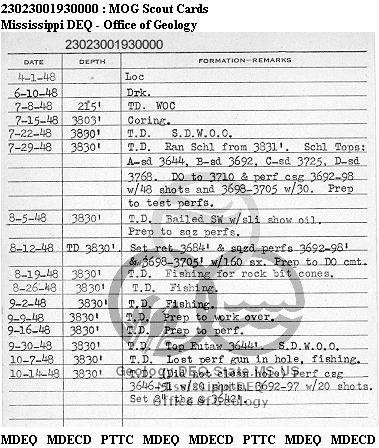 23023001930000 : MOG Scout Cards
Mississippi DEQ - Office of Geology
23023001930000
DATE DEPTH FORMATION—REMARKS
4-1-48 Loc
6-10-48 Drk.
7-8-48 215' TD. WOC
7-15-48 3803' Coring.
7-22-48 3830' T.D. S.D.W.O.O.
7-29-48 3830' T.D. Ran Schl from 3831'. Schl Tops:
A-sd 3644, B-sd 3692, C-sd 3725, D-sd
3768. DO to 3710 & perf csg 3692-98
w/48 shots and 3698-3705 w/30. Prep
to test perfs.
8-5-48 3830' T.D. Bailed SW w/sli show oil.
Prep to sqz perfs.
8-12-48 TD 3830' Set ret 3684' & sqzd perfs 3692-98'
& 3698-3705' w/160 sx. Prep to DO cmt.
8-19-48 3830' T.D. Fishing for rock bit cones.
8-26-48 3830' T.D. Fishing.
9-2-48 3830' T.D. Fishing.
9-9-48 3830' T.D. Prep to work over.
9-16-48 3830' T.D. Prep to perf.
9-30-48 3830' T.D. Top Eutaw 3644'. S.D.W.O.O.
10-7-48 3830' T.D. Lost perf gun in hole, fishing.
10-14-48 3830' T.D. (Did not clean hole) Perf csg
3646-51 w/20 shots, 3692-97 w/20 shots.
Set 2" tbg @ 3642'.
MDEQ MDECD PTTC MDEQ MDECD PTTC MDEQ MDECD